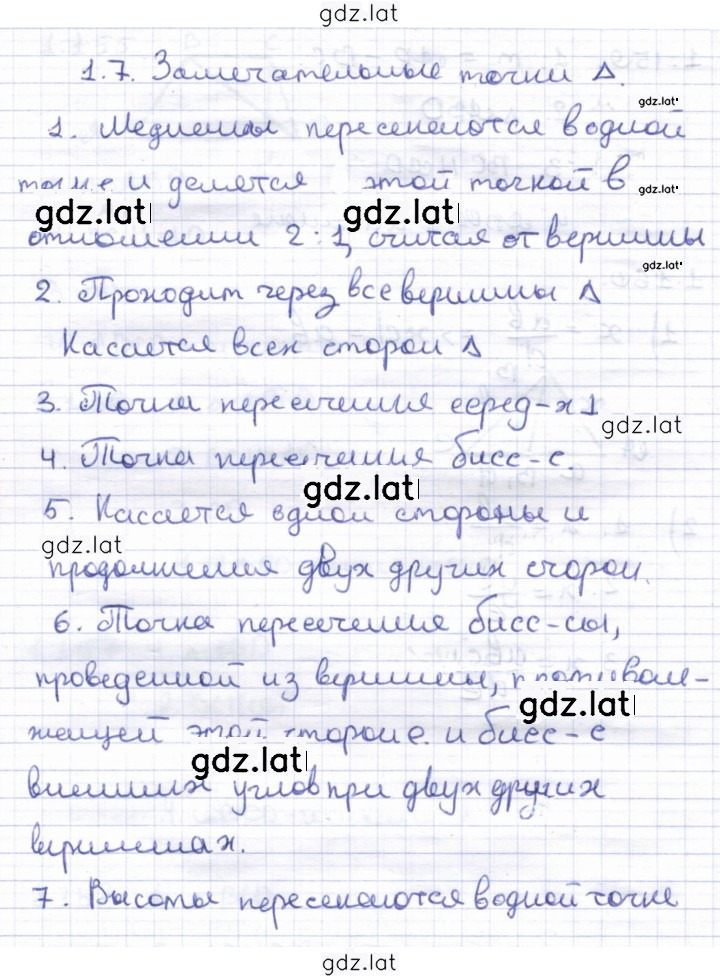 gdz.lat
1.7. Замечательные точки Δ.
gdz.lat
1. Медианы пересекаются в одной
точке и делятся этой точкой в
gdz.lat
gdz.lat gdz.lat
отношении 2:1, считая от вершины
gdz.lat
2. Проходит через все вершины Δ
Касается всех сторон Δ
3. Точка пересечения серед-х ⊥
gdz.lat
4. Точка пересечения бисс-с
gdz.lat
5. Касается одной стороны и
gdz.lat
продолжения двух других сторон.
6. Точка пересечения бисс-сы,
проведенной из вершины, противоле-
gdz.lat
жащей этой стороне и бисс-с
gdz.lat
внешних углов при двух других
вершинах.
7. Высоты пересекаются в одной точке
gdz.lat